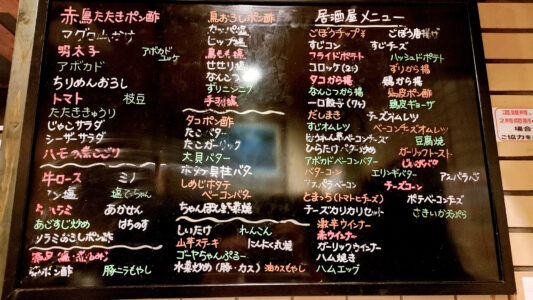 赤鳥たたきポン酢
明太子
アボカド
アボカド
ユッケ
ちりめんおろし
トマト
枝豆
たたききゅうり
じゃこサラダ
シーザーサラダ
牛ロース
ミノ
あかせん
あごすじ炒め
はちのす
ソラミおろしポン酢
豚ニラもやし
鳥おろしポン酢
せせり塩
なんこつ塩
ずりニンニク
手羽塩
タコポン酢
たこバター
たこガーリック
大貝バター
ホタテ貝柱バター
しめじポテト
ベーコンバター
しいたけ
れんこん
山芋ステーキ
にんにく丸焼
ゴーヤちゃんぷるー
水菜炒め(豚・カス)
油カスもやし
居酒屋メニュー
ごぼうチップ
ごぼう唐揚げ
すじコン
すじチーズ
フライドポテト
ハッシュドポテト
コロッケ(2コ)
ずりから揚
タコから揚
鶏から揚
なんこつから揚
鳥皮ポン酢
一口餃子(7ケ)
鶏皮ギョーザ
だしまき
チーズオムレツ
すじオムレツ
ベーコンチーズオムレツ
豆腐焼
ひらたけバター炒め
ガーリックトースト
アボカドベーコンバター
じゃがバター
バターコーン
エリンギバター
アスパラベーコン
チーズコーン
とまっち(トマトチーズ)
ポテベーコンチーズ
チーズカリカリセット
激辛ウインナー
赤ウインナー
ガーリックウインナー
ハム焼き
ハムエッグ
混雑時、
2時間制
場合
ご協力を